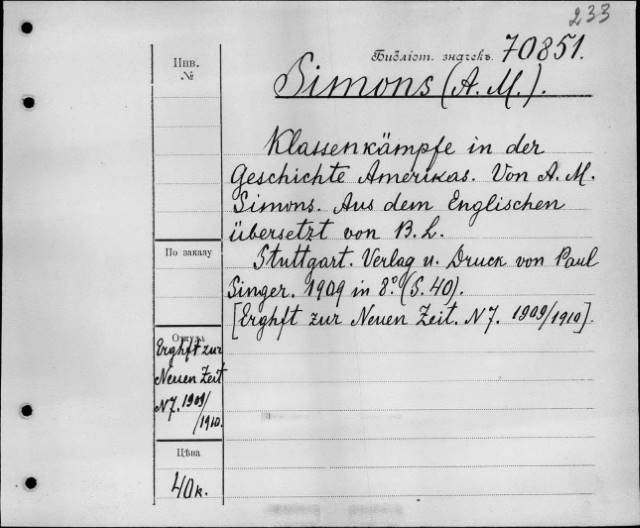 233
Инв.
№
Библіот. значекъ. 70851.
Simons (A. M.).
Klassenkämpfe in der
Geschichte Amerikas. Von A. M.
Simons. Aus dem Englischen
übersetzt von B. L.
Stuttgart. Verlag u. Druck von Paul
Singer. 1909 in 8º (S. 40).
[Erghft zur Neuen Zeit. N 7. 1909/1910].
По заказу
Откуда
Erghft zur
Neuen Zeit
N 7. 1909/
/1910.
Цѣна
40 к.